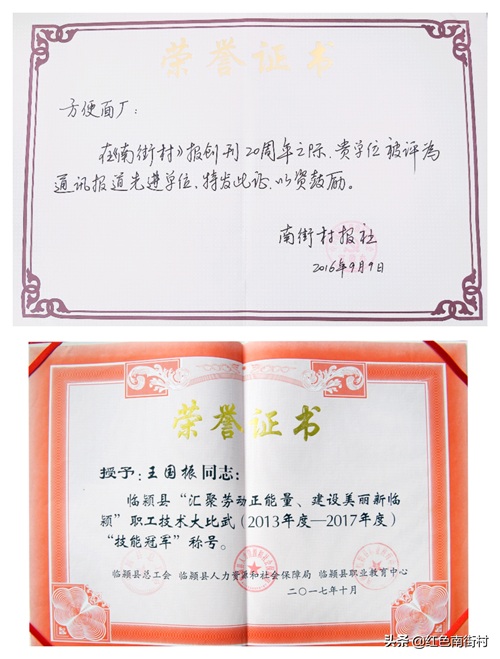 荣誉证书
方便面厂：
在《南街村》报创刊20周年之际，贵单位被评为
通讯报道先进单位，特发此证，以资鼓励。
南街村报社
2016年9月9日
荣誉证书
授予：王国振同志：
临颍县“汇聚劳动正能量、建设美丽新临
颍”职工技术大比武（2013年度—2017年度）
“技能冠军”称号。
临颍县总工会 临颍县人力资源和社会保障局 临颍县职业教育中心
二〇一七年十月
头条 @红色南街村